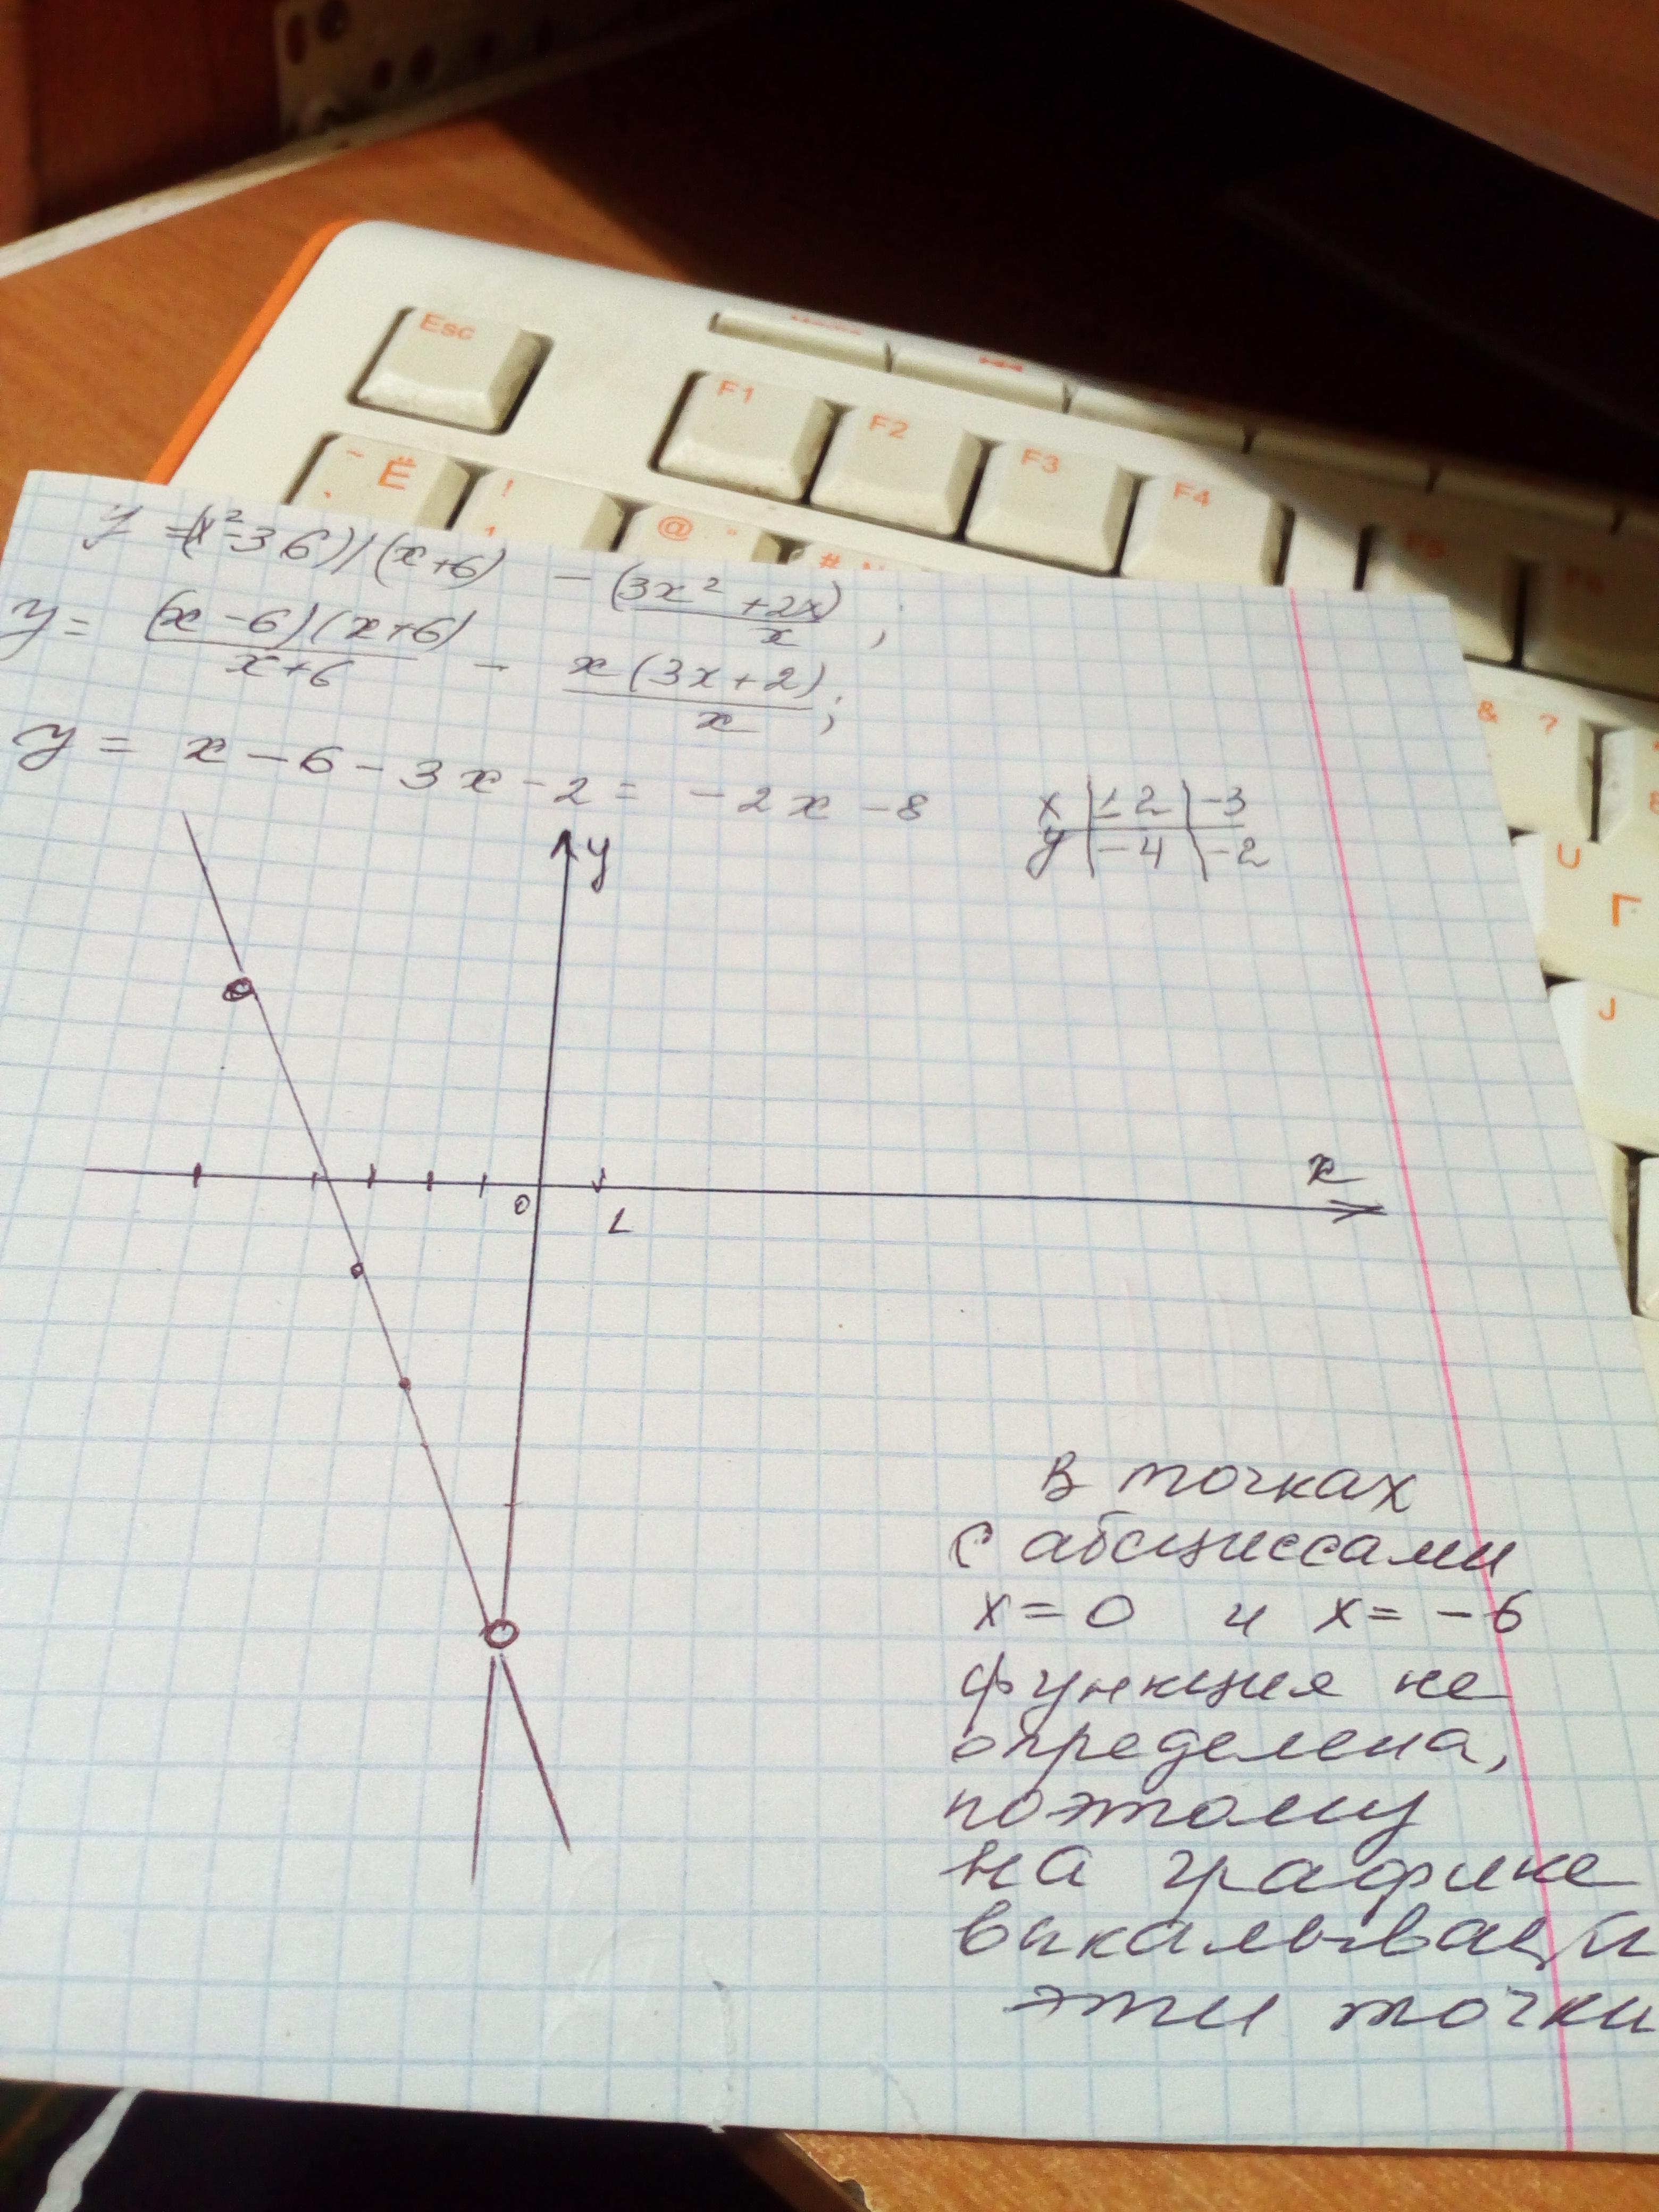 Esc
F1
F2
F3
F4
F5
F6
~ Ё
!
1
@ "
# №
& ?
U
Г
J
y = (x²-36)/(x+6) - (3x²+2x)/x ;
y = (x-6)(x+6)/x+6 - x(3x+2)/x ;
y = x - 6 - 3x - 2 = -2x - 8
x | -2 | -3
y | -4 | -2
y
x
0
1
В точках
с абсциссами
x = 0 и x = -6
функция не
определена,
поэтому
на графике
эти точки